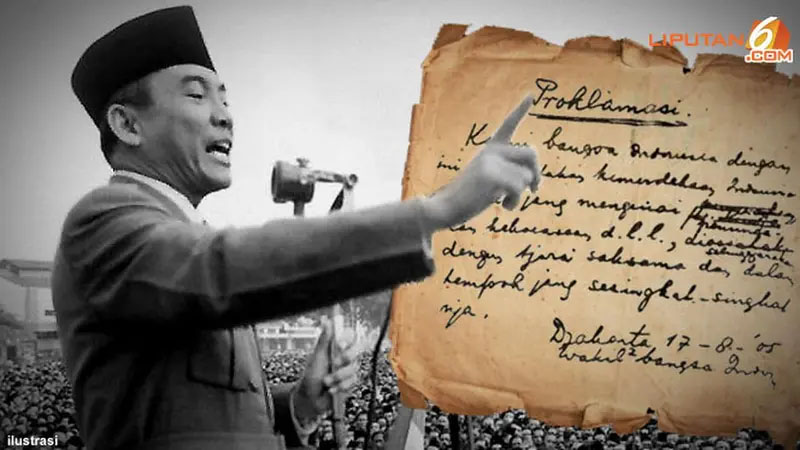 LIPUTAN6
.COM
Proklamasi.
bangsa Indonesia dengan
ini kemerdekaan Indonesia
jang mengenai
kekoeasaan d.l.l.,
dengan tjara saksama dan dalam
tempoh jang sesingkat-singkat
nja.
Djakarta 17-8-'05
Wakil2 bangsa Indon
ilustrasi